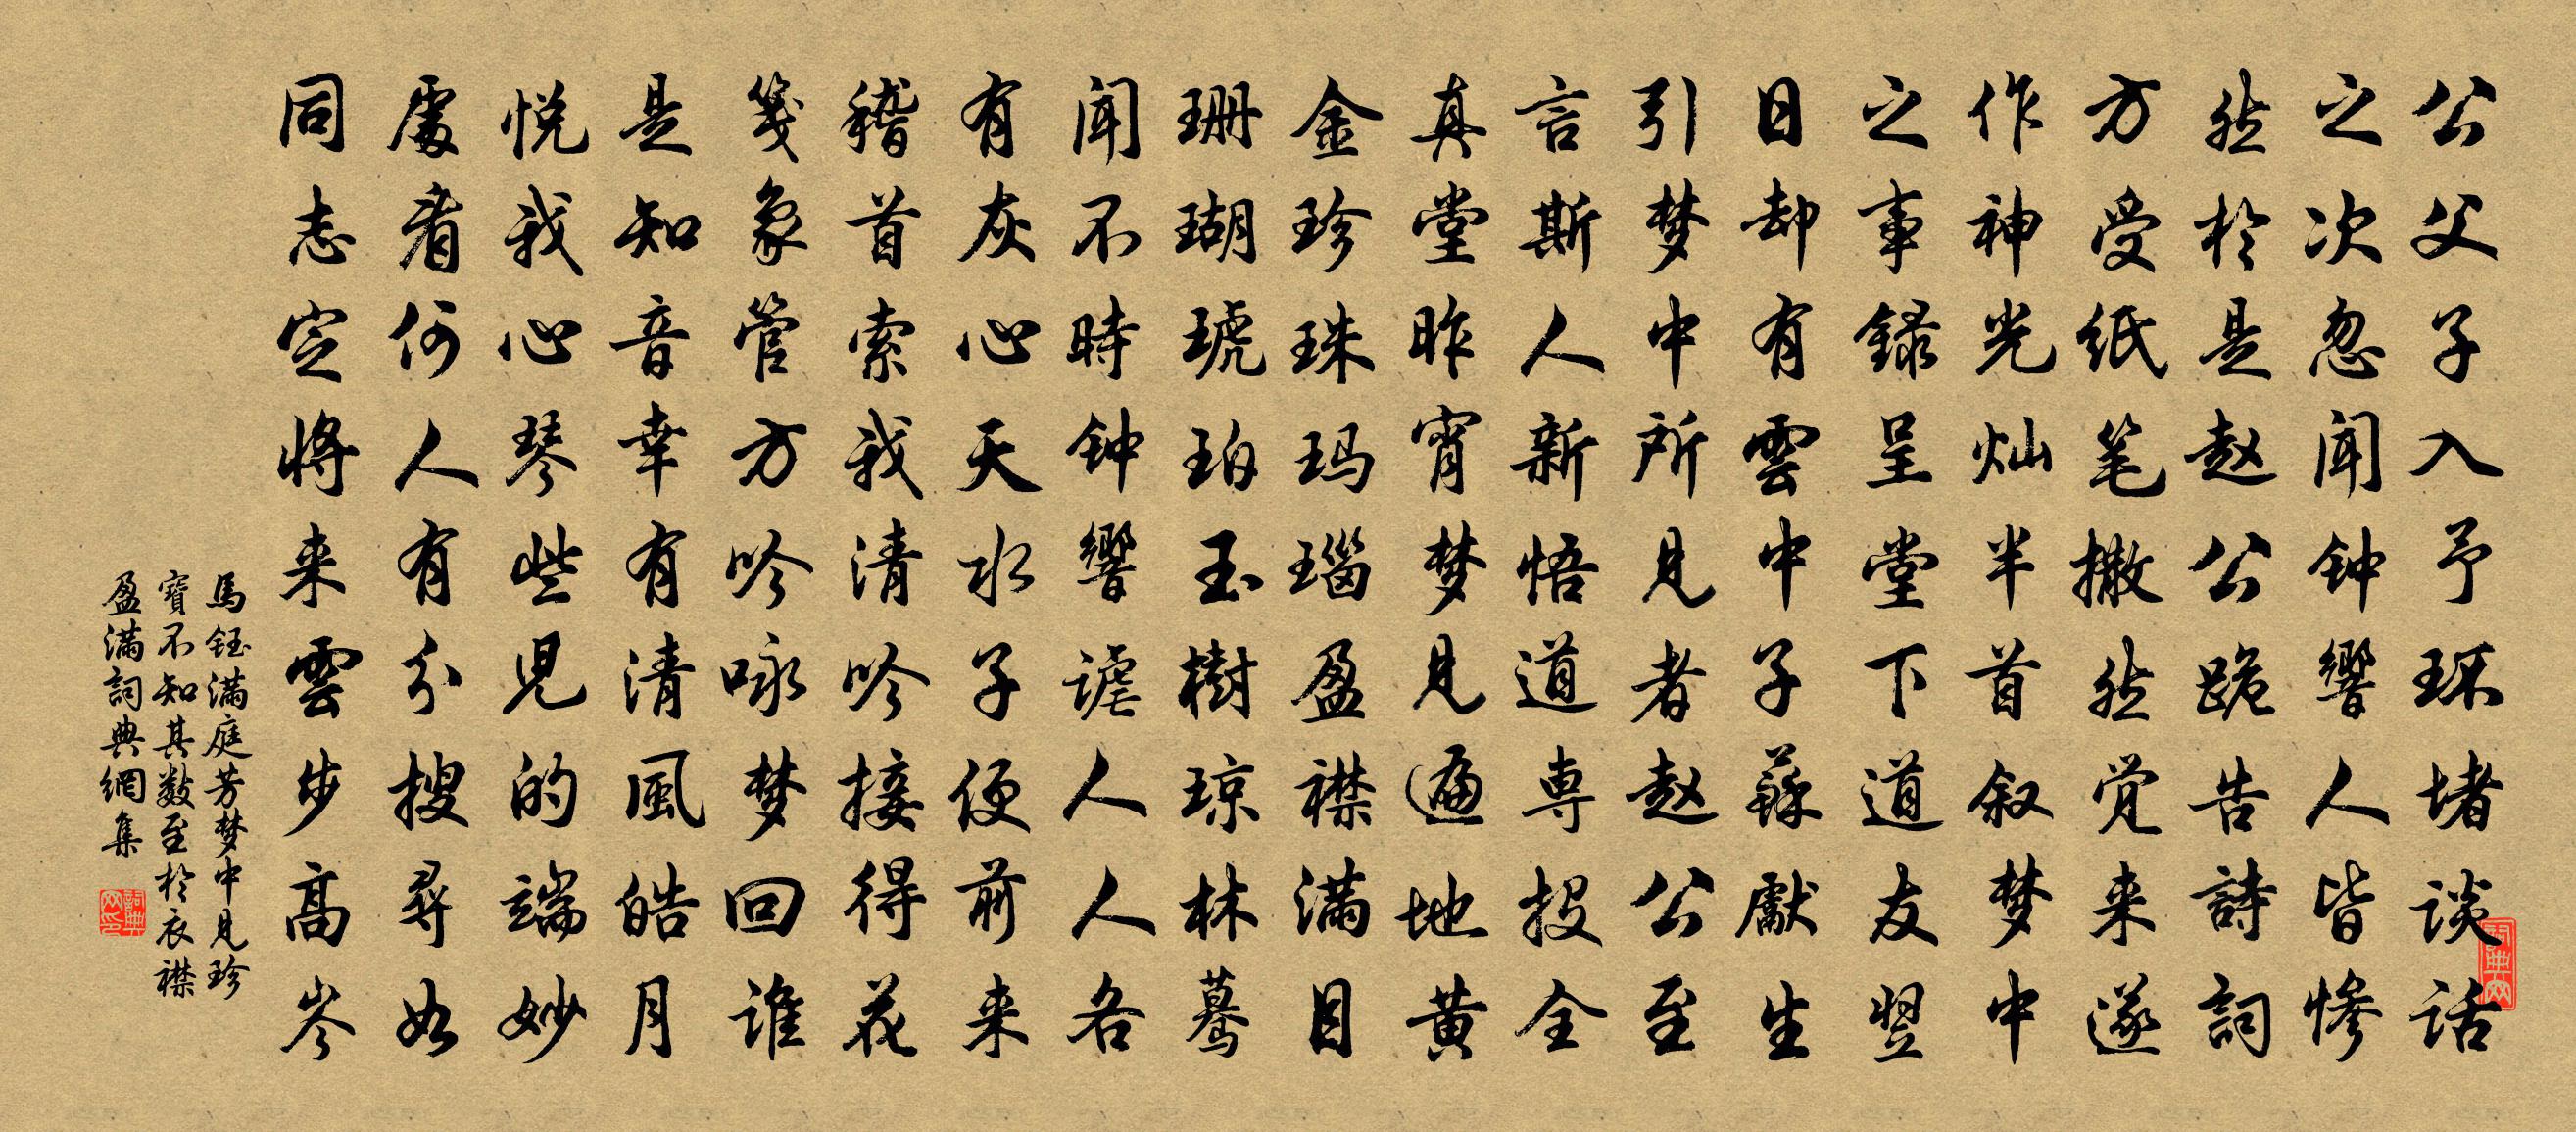 公父子入予环堵谈话
之次忽闻钟響人皆惨
然於是赵公跪告詩詞
方受纸笔撒然觉来遂
作神光灿半首叙梦中
之事録呈堂下道友翌
日却有雲中子蘇獻生
引梦中所见者赵公至
言斯人新悟道専投全
真堂昨宵梦见遍地黄
金珍珠玛瑙盈襟满目
珊瑚琥珀玉樹琼林蓦
闻不時钟響谑人人各
有灰心天水子便前来
稽首索我清吟接得花
笺象管方吟咏梦回谁
是知音幸有清風皓月
悦我心琴些児的端妙
處看何人有分搜尋如
同志定将来雲步高岑
馬钰满庭芳梦中见珍
寶不知其数至於衣襟
盈满詞典網集
詞典网印
詞典网